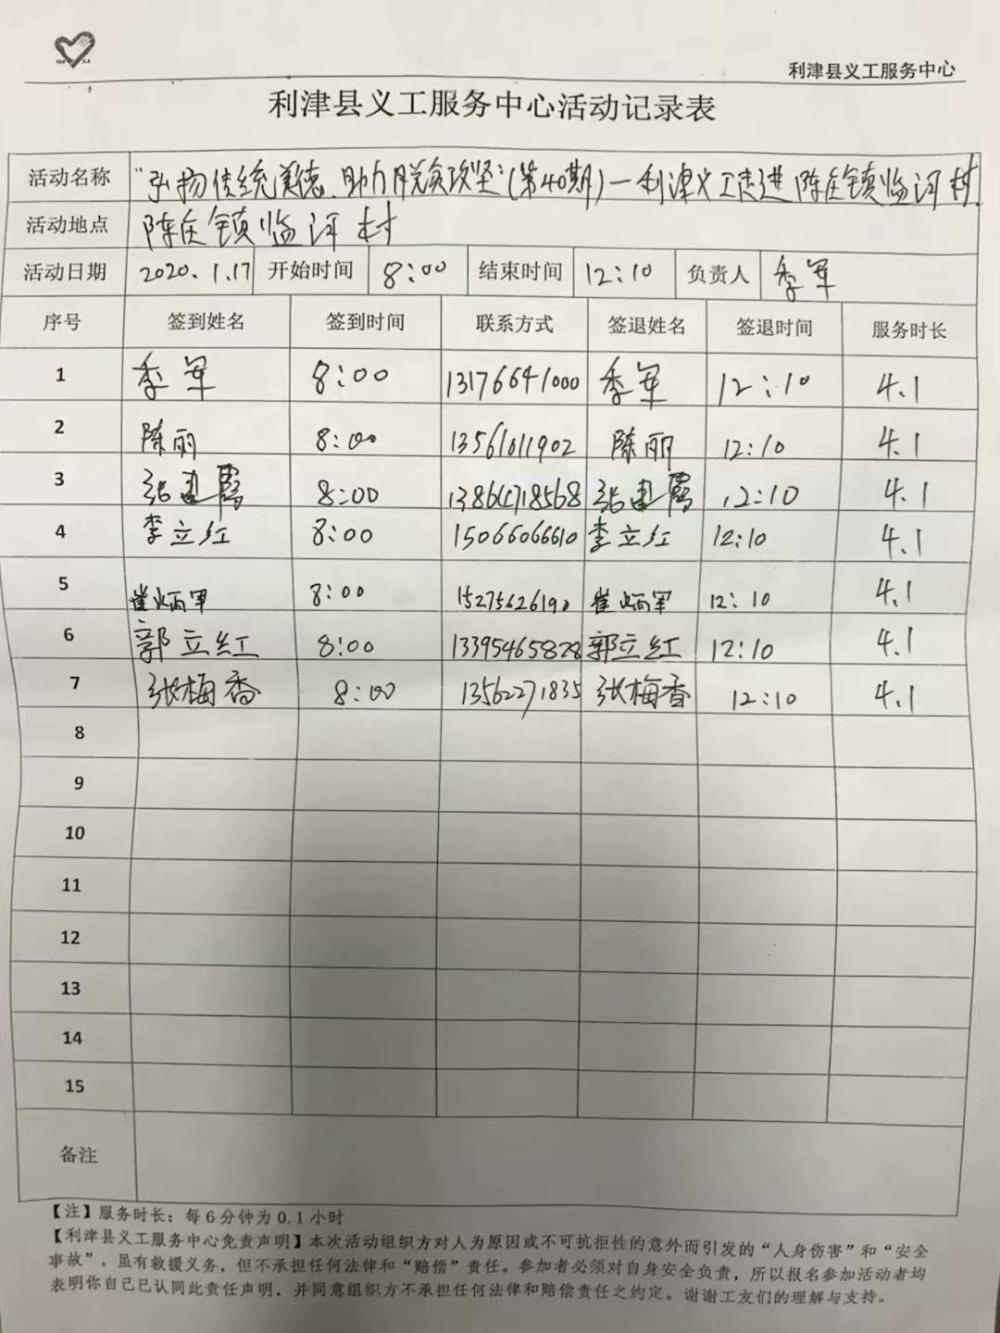 利津县义工服务中心
利津县义工服务中心活动记录表
活动名称 "弘扬传统美德、助力脱贫攻坚"(第40期)—利津义工走进陈庄镇临河村
活动地点 陈庄镇临河村
活动日期 2020.1.17 开始时间 8:00 结束时间 12:10 负责人 季军
序号 签到姓名 签到时间 联系方式 签退姓名 签退时间 服务时长
1 季军 8:00 13176641000 季军 12:10 4.1
2 陈丽 8:00 13561611902 陈丽 12:10 4.1
3 8:00 12:10 4.1
4 李立红 8:00 15066066610 李立红 12:10 4.1
5 崔炳军 8:00 15275626190 崔炳军 12:10 4.1
6 郭立红 8:00 13395465828 郭立红 12:10 4.1
7 张梅香 8:00 13562271835 张梅香 12:10 4.1
8
9
10
11
12
13
14
15
备注
【注】服务时长：每6分钟为0.1小时
【利津县义工服务中心免责声明】本次活动组织方对人为原因或不可抗拒性的意外而引发的“人身伤害”和“安全
事故”，虽有救援义务，但不承担任何法律和“赔偿”责任。参加者必须对自身安全负责，所以报名参加活动者均
表明你自己已认同此责任声明，并同意组织方不承担任何法律和赔偿责任之约定。谢谢工友们的理解与支持。